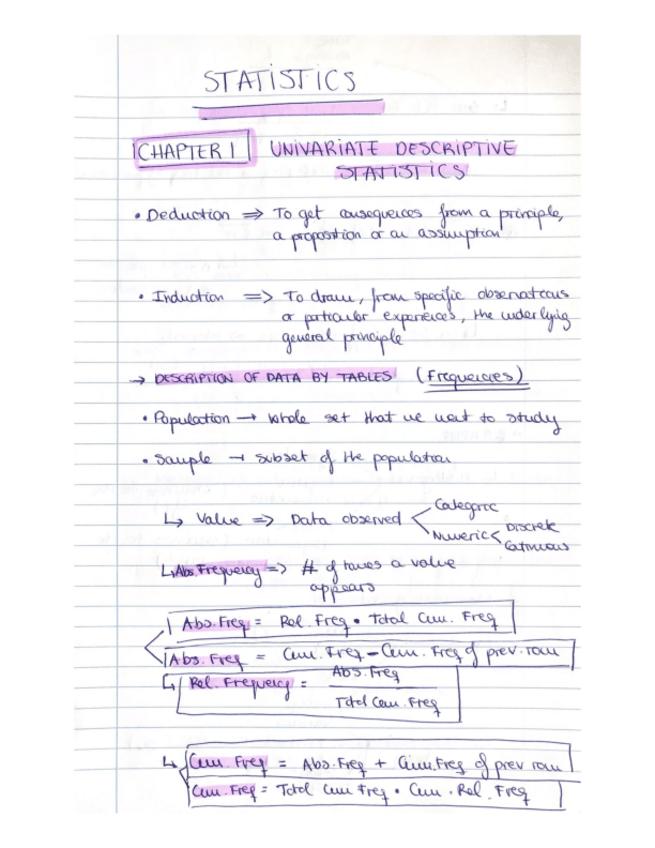 STATISTICS
CHAPTER 1 UNIVARIATE DESCRIPTIVE
STATISTICS
• Deduction ⇒ To get consequences from a principle,
a proposition or an assumption
• Induction ⇒ To draw, from specific observations
or particular experiences, the underlying
general principle
→ DESCRIPTION OF DATA BY TABLES (Frequencies)
• Population → Whole set that we want to study
• Sample → subset of the population
↳ Value ⇒ Data observed < Categoric
Numeric < Discrete
Continuous
↳ Abs. Frequency ⇒ # of times a value
appears
Abs. Freq = Rel. Freq • Total Cum. Freq
Abs. Freq = Cum. Freq - Cum. Freq of prev. row
↳ Rel. Frequency = Abs. Freq
Total Cum. Freq
↳ Cum. Freq = Abs. Freq + Cum. Freq of prev row
Cum. Freq = Total Cum Freq • Cum. Rel. Freq